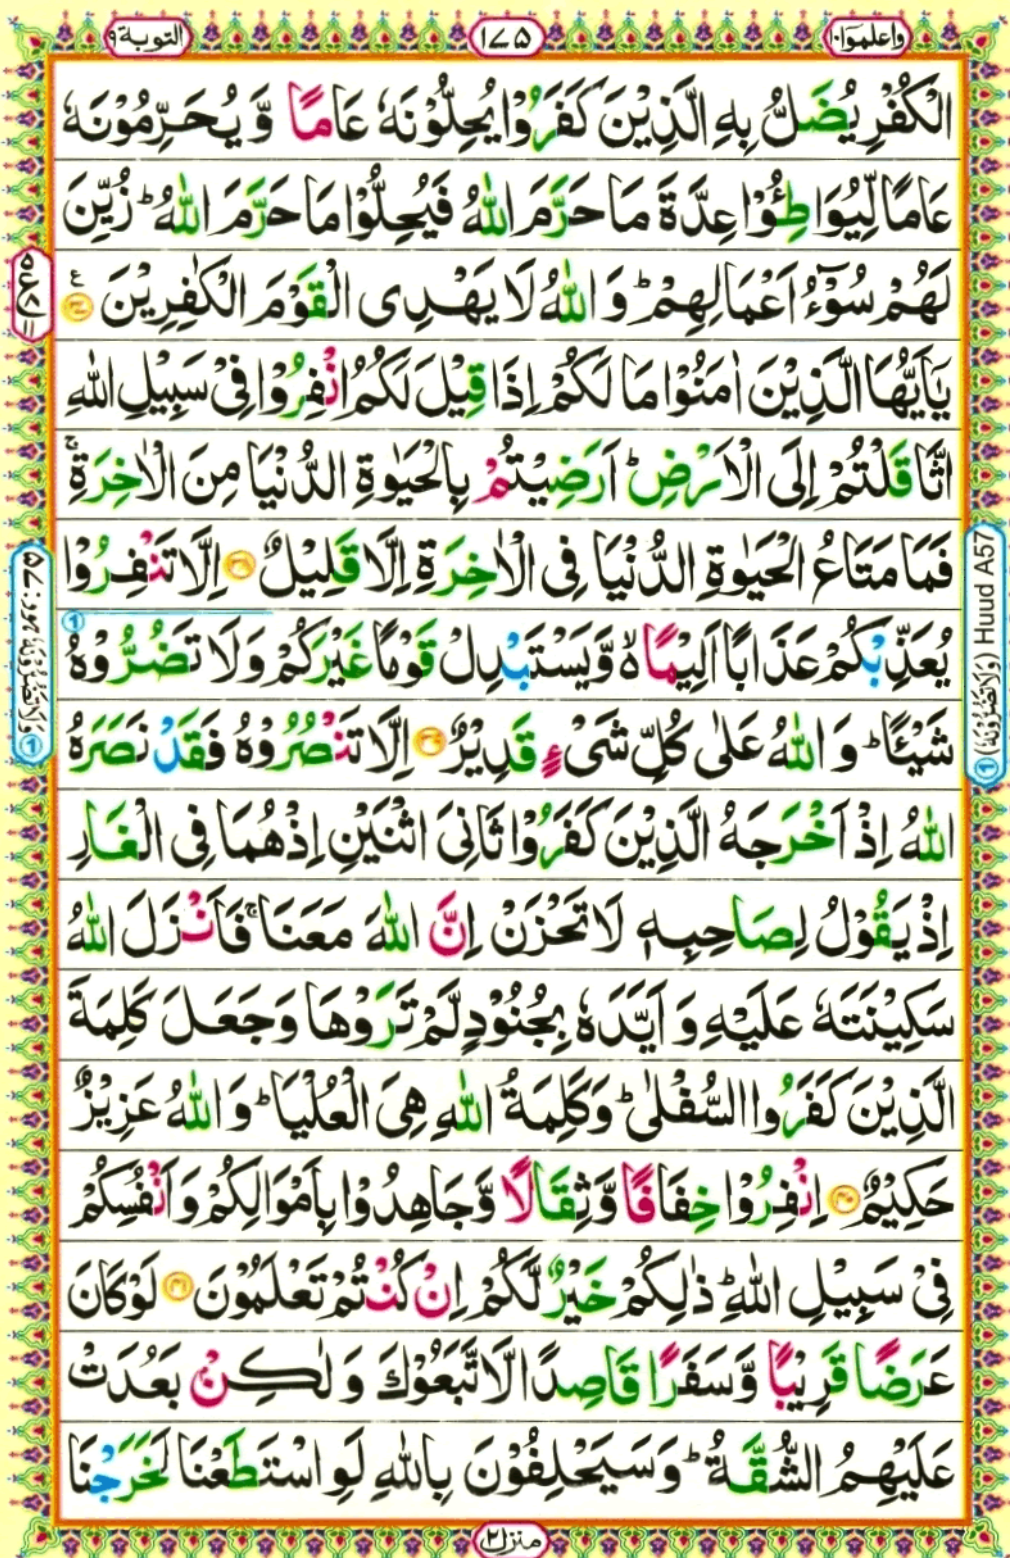 واعلموا ١٠
١٧٥
التوبة ٩
الْكُفْرِ يُضَلُّ بِهِ الَّذِيْنَ كَفَرُوْا يُحِلُّوْنَهٗ عَامًا وَّ يُحَرِّمُوْنَهٗ
عَامًا لِّيُوَاطِـُٔوْا عِدَّةَ مَا حَرَّمَ اللّٰهُ فَيُحِلُّوْا مَا حَرَّمَ اللّٰهُ ؕ زُيِّنَ
لَهُمْ سُوْٓءُ اَعْمَالِهِمْ ؕ وَ اللّٰهُ لَا يَهْدِى الْقَوْمَ الْكٰفِرِيْنَ ع ۳۷
يٰۤاَيُّهَا الَّذِيْنَ اٰمَنُوْا مَا لَكُمْ اِذَا قِيْلَ لَكُمُ انْفِرُوْا فِىْ سَبِيْلِ اللّٰهِ
اثَّاقَلْتُمْ اِلَى الْاَرْضِ ؕ اَرَضِيْتُمْ بِالْحَيٰوةِ الدُّنْيَا مِنَ الْاٰخِرَةِ ۚ
فَمَا مَتَاعُ الْحَيٰوةِ الدُّنْيَا فِى الْاٰخِرَةِ اِلَّا قَلِيْلٌ ۳۸ اِلَّا تَنْفِرُوْا
يُعَذِّبْكُمْ عَذَابًا اَلِيْمًا ۙ۬ وَّيَسْتَبْدِلْ قَوْمًا غَيْرَكُمْ وَلَا تَضُرُّوْهُ
شَيْـًٔا ؕ وَ اللّٰهُ عَلٰى كُلِّ شَىْءٍ قَدِيْرٌ ۳۹ اِلَّا تَنْصُرُوْهُ فَقَدْ نَصَرَهُ
اللّٰهُ اِذْ اَخْرَجَهُ الَّذِيْنَ كَفَرُوْا ثَانِىَ اثْنَيْنِ اِذْ هُمَا فِى الْغَارِ
اِذْ يَقُوْلُ لِصَاحِبِهٖ لَا تَحْزَنْ اِنَّ اللّٰهَ مَعَنَا ۚ فَاَنْزَلَ اللّٰهُ
سَكِيْنَتَهٗ عَلَيْهِ وَ اَيَّدَهٗ بِجُنُوْدٍ لَّمْ تَرَوْهَا وَجَعَلَ كَلِمَةَ
الَّذِيْنَ كَفَرُوا السُّفْلٰى ؕ وَكَلِمَةُ اللّٰهِ هِىَ الْعُلْيَا ؕ وَ اللّٰهُ عَزِيْزٌ
حَكِيْمٌ ۴۰ اِنْفِرُوْا خِفَافًا وَّثِقَالًا وَّجَاهِدُوْا بِاَمْوَالِكُمْ وَاَنْفُسِكُمْ
فِىْ سَبِيْلِ اللّٰهِ ؕ ذٰلِكُمْ خَيْرٌ لَّكُمْ اِنْ كُنْتُمْ تَعْلَمُوْنَ ۴۱ لَوْ كَانَ
عَرَضًا قَرِيْبًا وَّسَفَرًا قَاصِدًا لَّاتَّبَعُوْكَ وَ لٰكِنْۢ بَعُدَتْ
عَلَيْهِمُ الشُّقَّةُ ؕ وَسَيَحْلِفُوْنَ بِاللّٰهِ لَوِ اسْتَطَعْنَا لَخَرَجْنَا
① (وَلَا تَضُرُّوْنَهٗ) Huud A57
منزل ٢